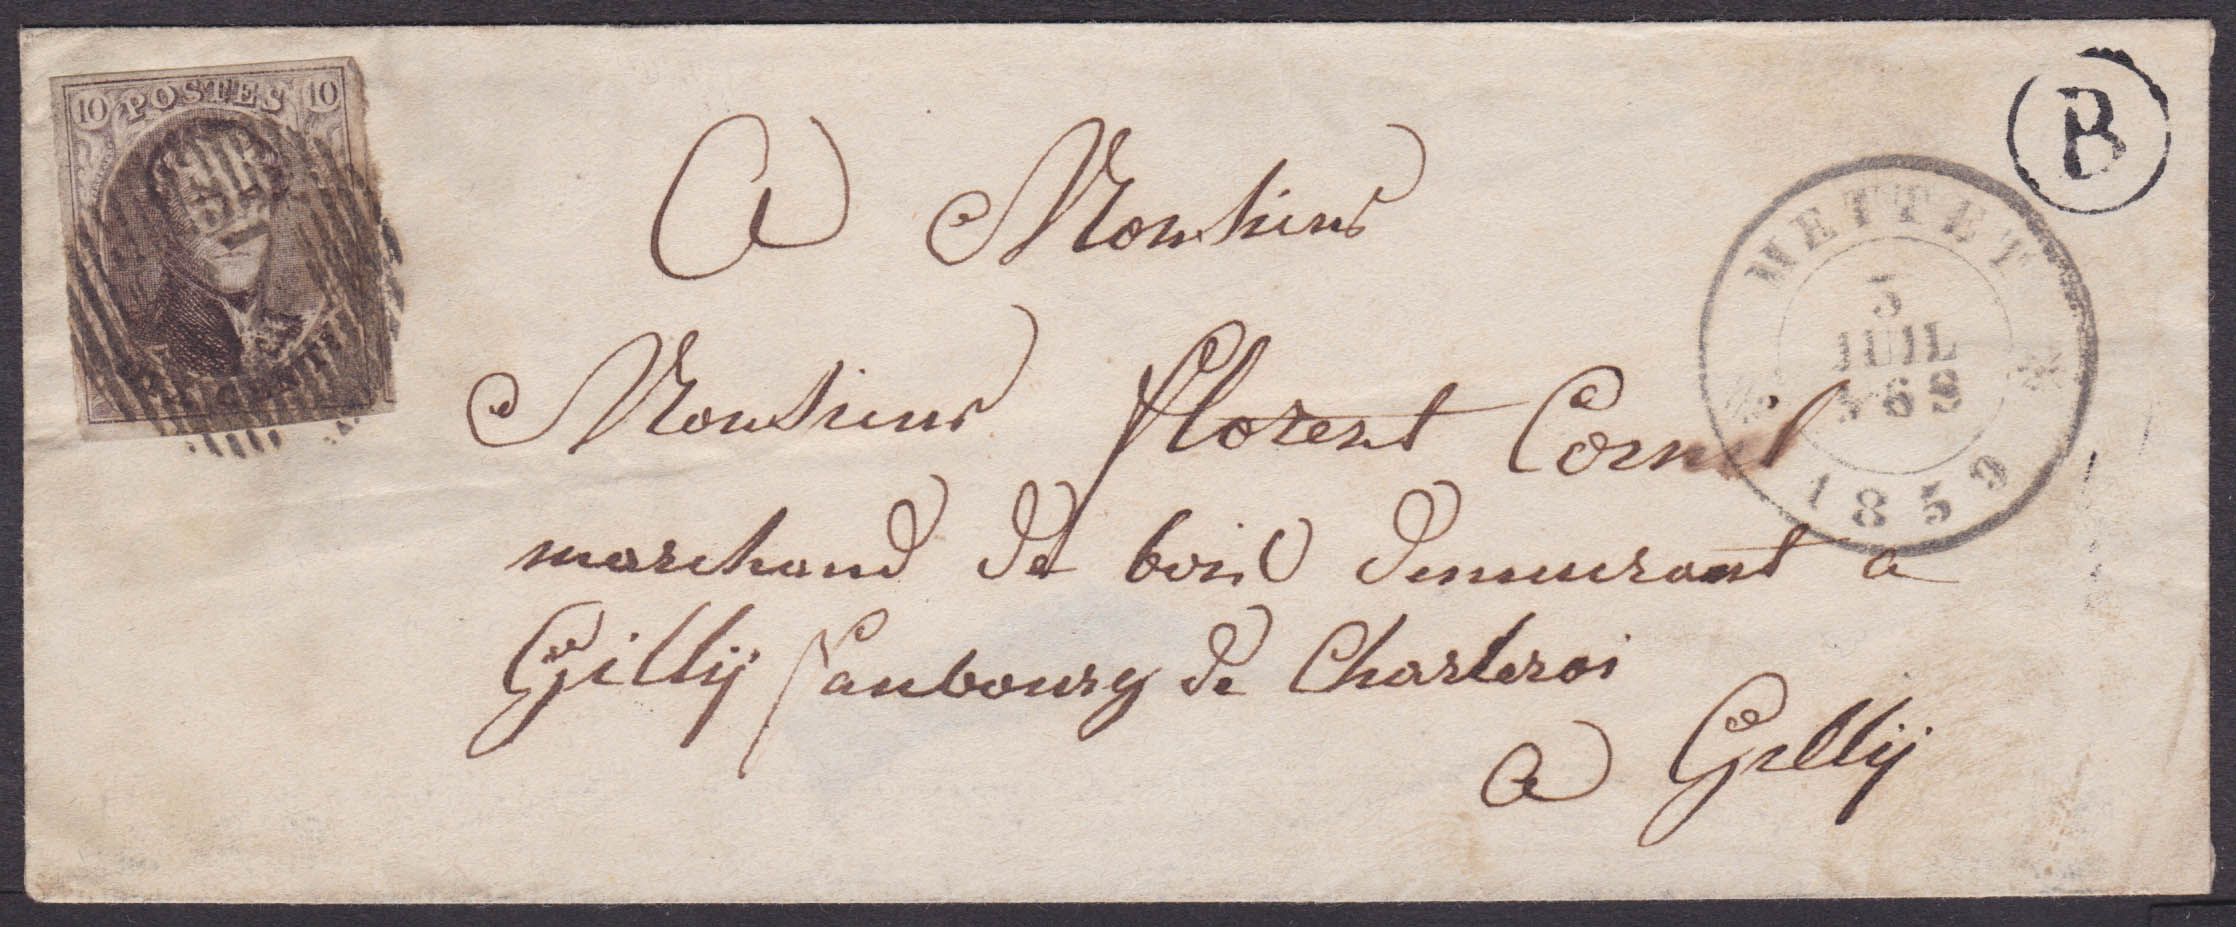 10 POSTES 10
B
METTET
JUIL
1859
A Monsieur
Monsieur florent Cornil
marchand de bois demeurant a
Gillÿ faubourg de Charleroi
a Gillÿ